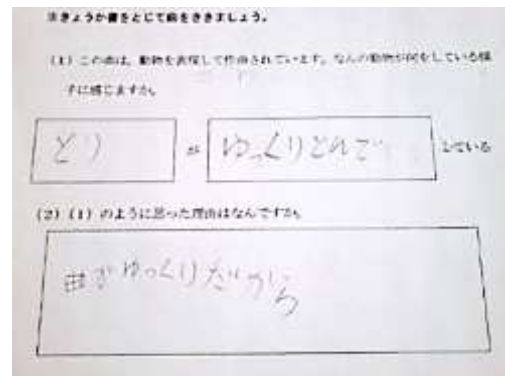 ※きょうか書をとじて曲をききましょう。
(1) この曲は、動物を表現して作曲されています。なんの動物が何をしている様
子に感じますか。
とり が ゆっくりとんで している
(2) (1) のように思った理由はなんですか。
曲がゆっくりだから